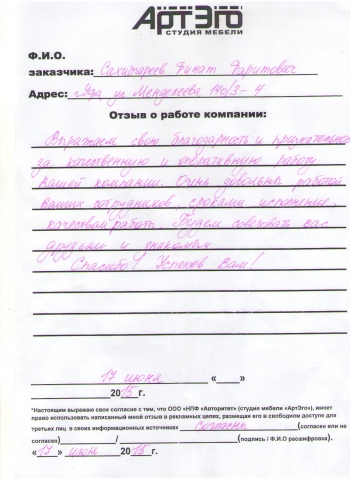 АртЭго
СТУДИЯ МЕБЕЛИ
Ф.И.О.
заказчика: Сахибгареев Финат Фаритович
Адрес: г. Уфа ул Менделеева 140/3-4
Отзыв о работе компании:
Выражаем свою благодарность и признательность
за качественную и оперативную работу
Вашей компании. Очень довольны работой
Ваших сотрудников, сроками исполнения,
качеством работы. Будем советовать вас
друзьям и знакомым.
Спасибо! Успехов Вам!
17 июня « »
2015 г.
*Настоящим выражаю свое согласие с тем, что ООО «НПФ «Авторитет» (студия мебели «АртЭго»), имеет
право использовать написанный мной отзыв в рекламных целях, размещая его в свободном доступе для
третьих лиц в своих информационных источниках согласен (согласен или не
согласен) / (подпись / Ф.И.О расшифровка).
«17» июня 2015 г.